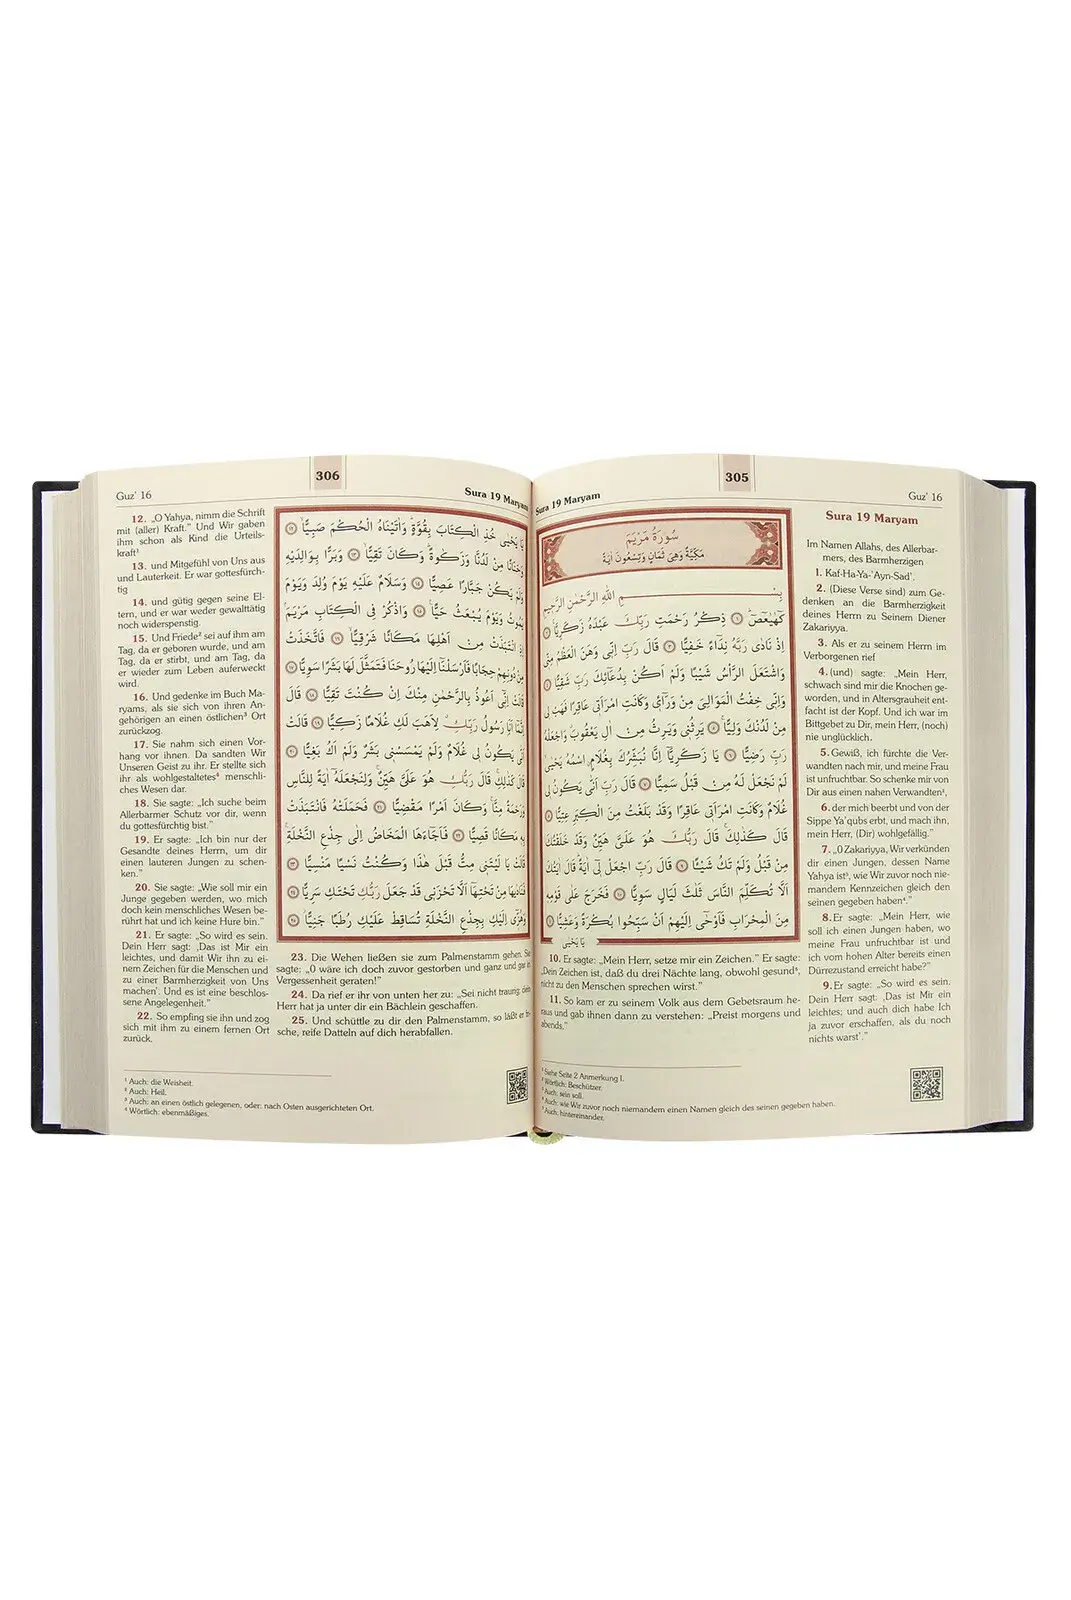 305
Sura 19 Maryam
Guz' 16
Sura 19 Maryam
Im Namen Allahs, des Allerbar-
mers, des Barmherzigen
1. Kaf-Ha-Ya-'Ayn-Sad¹.
2. (Diese Verse sind) zum Ge-
denken an die Barmherzigkeit
deines Herrn zu Seinem Diener
Zakariyya.
3. Als er zu seinem Herrn im
Verborgenen rief
4. (und) sagte: „Mein Herr,
schwach sind mir die Knochen ge-
worden, und in Altersgrauheit ent-
facht ist der Kopf. Und ich war im
Bittgebet zu Dir, mein Herr, (noch)
nie unglücklich.
5. Gewiß, ich fürchte die Ver-
wandten nach mir, und meine Frau
ist unfruchtbar. So schenke mir von
Dir aus einen nahen Verwandten²,
6. der mich beerbt und von der
Sippe Ya'qubs erbt, und mach ihn,
mein Herr, (Dir) wohlgefällig."
7. „O Zakariyya, Wir verkünden
dir einen Jungen, dessen Name
Yahya ist³, wie Wir zuvor noch nie-
mandem Kennzeichen gleich den
seinen gegeben haben⁴."
8. Er sagte: „Mein Herr, wie
soll ich einen Jungen haben, wo
meine Frau unfruchtbar ist und
ich vom hohen Alter bereits einen
Dürrezustand erreicht habe?"
9. Er sagte: „So wird es sein.
Dein Herr sagt: ‚Das ist Mir ein
leichtes; und auch dich habe Ich
ja zuvor erschaffen, als du noch
nichts warst'."
سُورَةُ مَرْيَمَ
مَكِّيَّةٌ وَهِيَ ثَمَانٍ وَتِسْعُونَ اٰيَةً
بِسْمِ اللهِ الرَّحْمٰنِ الرَّحِيمِ
كٓهٰيٰعٓصٓ ﴿١﴾ ذِكْرُ رَحْمَتِ رَبِّكَ عَبْدَهُ زَكَرِيَّا ﴿٢﴾
اِذْ نَادٰى رَبَّهُ نِدَٓاءً خَفِيًّا ﴿٣﴾ قَالَ رَبِّ اِنّٖى وَهَنَ الْعَظْمُ مِنّٖى
وَاشْتَعَلَ الرَّأْسُ شَيْبًا وَلَمْ اَكُنْ بِدُعَٓائِكَ رَبِّ شَقِيًّا ﴿٤﴾
وَاِنّٖى خِفْتُ الْمَوَالِىَ مِنْ وَرَٓاءٖى وَكَانَتِ امْرَاَتٖى عَاقِرًا فَهَبْ لٖى
مِنْ لَدُنْكَ وَلِيًّا ﴿٥﴾ يَرِثُنٖى وَيَرِثُ مِنْ اٰلِ يَعْقُوبَ وَاجْعَلْهُ
رَبِّ رَضِيًّا ﴿٦﴾ يَا زَكَرِيَّٓا اِنَّا نُبَشِّرُكَ بِغُلَامٍ اسْمُهُ يَحْيٰى
لَمْ نَجْعَلْ لَهُ مِنْ قَبْلُ سَمِيًّا ﴿٧﴾ قَالَ رَبِّ اَنّٰى يَكُونُ لٖى
غُلَامٌ وَكَانَتِ امْرَاَتٖى عَاقِرًا وَقَدْ بَلَغْتُ مِنَ الْكِبَرِ عِتِيًّا ﴿٨﴾
قَالَ كَذٰلِكَ قَالَ رَبُّكَ هُوَ عَلَىَّ هَيِّنٌ وَقَدْ خَلَقْتُكَ
مِنْ قَبْلُ وَلَمْ تَكُ شَيْـًٔا ﴿٩﴾ قَالَ رَبِّ اجْعَلْ لٖٓى اٰيَةً قَالَ اٰيَتُكَ
اَلَّا تُكَلِّمَ النَّاسَ ثَلٰثَ لَيَالٍ سَوِيًّا ﴿١٠﴾ فَخَرَجَ عَلٰى قَوْمِهٖ
مِنَ الْمِحْرَابِ فَاَوْحٰٓى اِلَيْهِمْ اَنْ سَبِّحُوا بُكْرَةً وَعَشِيًّا ﴿١١﴾
يَا يَحْيٰى
10. Er sagte: „Mein Herr, setze mir ein Zeichen." Er sagte:
„Dein Zeichen ist, daß du drei Nächte lang, obwohl gesund⁵,
nicht zu den Menschen sprechen wirst."
11. So kam er zu seinem Volk aus dem Gebetsraum he-
raus und gab ihnen dann zu verstehen: „Preist morgens und
abends."
¹ Siehe Seite 2 Anmerkung 1.
² Wörtlich: Beschützer.
³ Auch: sein soll.
⁴ Auch: wie Wir zuvor noch niemandem einen Namen gleich des seinen gegeben haben.
⁵ Auch: hintereinander.
306
Guz' 16
Sura 19 Maryam
12. „O Yahya, nimm die Schrift
mit (aller) Kraft." Und Wir gaben
ihm schon als Kind die Urteils-
kraft¹
13. und Mitgefühl von Uns aus
und Lauterkeit. Er war gottesfürch-
tig
14. und gütig gegen seine El-
tern, und er war weder gewalttätig
noch widerspenstig.
15. Und Friede² sei auf ihm am
Tag, da er geboren wurde, und am
Tag, da er stirbt, und am Tag, da
er wieder zum Leben auferweckt
wird.
16. Und gedenke im Buch Ma-
ryams, als sie sich von ihren An-
gehörigen an einen östlichen³ Ort
zurückzog.
17. Sie nahm sich einen Vor-
hang vor ihnen. Da sandten Wir
Unseren Geist zu ihr. Er stellte sich
ihr als wohlgestaltetes⁴ menschli-
ches Wesen dar.
18. Sie sagte: „Ich suche beim
Allerbarmer Schutz vor dir, wenn
du gottesfürchtig bist."
19. Er sagte: „Ich bin nur der
Gesandte deines Herrn, um dir
einen lauteren Jungen zu schen-
ken."
20. Sie sagte: „Wie soll mir ein
Junge gegeben werden, wo mich
doch kein menschliches Wesen be-
rührt hat und ich keine Hure bin."
21. Er sagte: „So wird es sein.
Dein Herr sagt: ‚Das ist Mir ein
leichtes, und damit Wir ihn zu ei-
nem Zeichen für die Menschen und
zu einer Barmherzigkeit von Uns
machen'. Und es ist eine beschlos-
sene Angelegenheit."
22. So empfing sie ihn und zog
sich mit ihm zu einem fernen Ort
zurück.
يَا يَحْيٰى خُذِ الْكِتَابَ بِقُوَّةٍ وَاٰتَيْنَاهُ الْحُكْمَ صَبِيًّا ﴿١٢﴾
وَحَنَانًا مِنْ لَدُنَّا وَزَكٰوةً وَكَانَ تَقِيًّا ﴿١٣﴾ وَبَرًّا بِوَالِدَيْهِ
وَلَمْ يَكُنْ جَبَّارًا عَصِيًّا ﴿١٤﴾ وَسَلَامٌ عَلَيْهِ يَوْمَ وُلِدَ وَيَوْمَ
يَمُوتُ وَيَوْمَ يُبْعَثُ حَيًّا ﴿١٥﴾ وَاذْكُرْ فِى الْكِتَابِ مَرْيَمَ
اِذِ انْتَبَذَتْ مِنْ اَهْلِهَا مَكَانًا شَرْقِيًّا ﴿١٦﴾ فَاتَّخَذَتْ
مِنْ دُونِهِمْ حِجَابًا فَاَرْسَلْنَٓا اِلَيْهَا رُوحَنَا فَتَمَثَّلَ لَهَا بَشَرًا سَوِيًّا ﴿١٧﴾
قَالَتْ اِنّٖٓى اَعُوذُ بِالرَّحْمٰنِ مِنْكَ اِنْ كُنْتَ تَقِيًّا ﴿١٨﴾ قَالَ
اِنَّمَٓا اَنَا رَسُولُ رَبِّكِ لِاَهَبَ لَكِ غُلَامًا زَكِيًّا ﴿١٩﴾ قَالَتْ
اَنّٰى يَكُونُ لٖى غُلَامٌ وَلَمْ يَمْسَسْنٖى بَشَرٌ وَلَمْ اَكُ بَغِيًّا ﴿٢٠﴾
قَالَ كَذٰلِكِ قَالَ رَبُّكِ هُوَ عَلَىَّ هَيِّنٌ وَلِنَجْعَلَهُٓ اٰيَةً لِلنَّاسِ
وَرَحْمَةً مِنَّا وَكَانَ اَمْرًا مَقْضِيًّا ﴿٢١﴾ فَحَمَلَتْهُ فَانْتَبَذَتْ
بِهٖ مَكَانًا قَصِيًّا ﴿٢٢﴾ فَاَجَٓاءَهَا الْمَخَاضُ اِلٰى جِذْعِ النَّخْلَةِ
قَالَتْ يَا لَيْتَنٖى مِتُّ قَبْلَ هٰذَا وَكُنْتُ نَسْيًا مَنْسِيًّا ﴿٢٣﴾
فَنَادٰيهَا مِنْ تَحْتِهَٓا اَلَّا تَحْزَنٖى قَدْ جَعَلَ رَبُّكِ تَحْتَكِ سَرِيًّا ﴿٢٤﴾
وَهُزّٖٓى اِلَيْكِ بِجِذْعِ النَّخْلَةِ تُسَاقِطْ عَلَيْكِ رُطَبًا جَنِيًّا ﴿٢٥﴾
23. Die Wehen ließen sie zum Palmenstamm gehen. Sie
sagte: „O wäre ich doch zuvor gestorben und ganz und gar in
Vergessenheit geraten!"
24. Da rief er ihr von unten her zu: „Sei nicht traurig; dein
Herr hat ja unter dir ein Bächlein geschaffen.
25. Und schüttle zu dir den Palmenstamm, so läßt er fri-
sche, reife Datteln auf dich herabfallen.
¹ Auch: die Weisheit.
² Auch: Heil.
³ Auch: an einen östlich gelegenen, oder: nach Osten ausgerichteten Ort.
⁴ Wörtlich: ebenmäßiges.